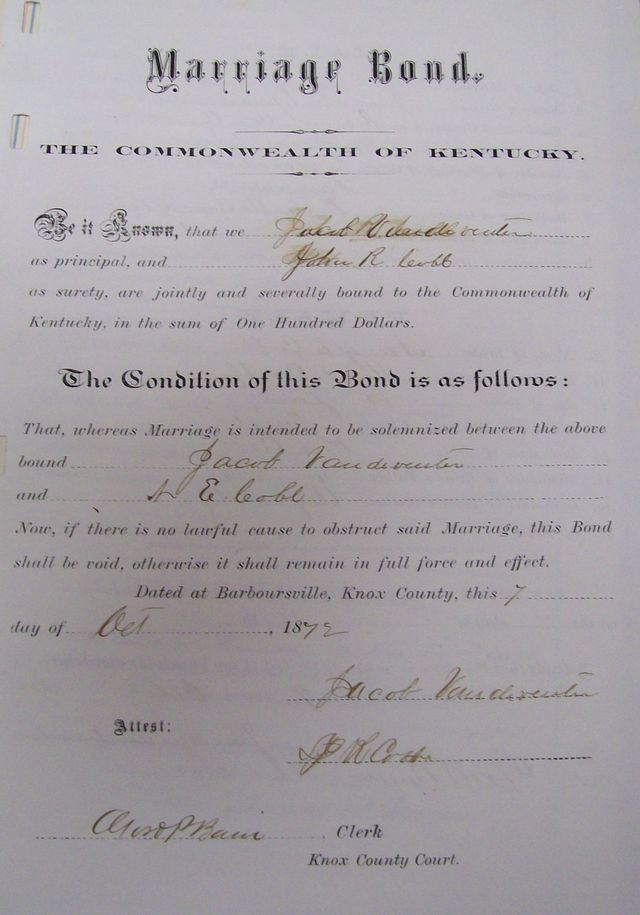 Marriage Bond.
THE COMMONWEALTH OF KENTUCKY.
Be it Known, that we Jacob Vandeventer
as principal, and John R Cobb
as surety, are jointly and severally bound to the Commonwealth of
Kentucky, in the sum of One Hundred Dollars.
The Condition of this Bond is as follows:
That, whereas Marriage is intended to be solemnized between the above
bound Jacob Vandeventer
and E Cobb
Now, if there is no lawful cause to obstruct said Marriage, this Bond
shall be void, otherwise it shall remain in full force and effect.
Dated at Barboursville, Knox County, this 7
day of Oct, 1872
Jacob Vandeventer
Attest:
J R Cobb
Clerk
Knox County Court.